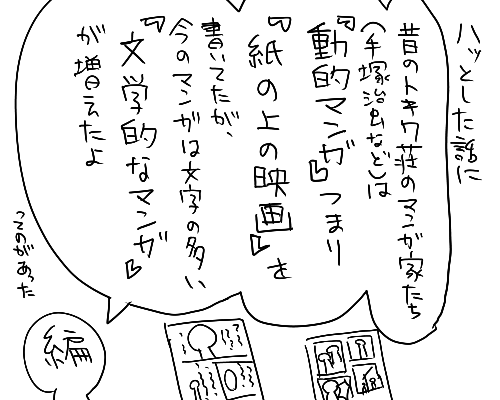 ハッとした話に
昔のトキワ荘のマンガ家たち
(手塚治虫など)は
『動的マンガ』つまり
『紙の上の映画』を
書いてたが、
今のマンガは文字の多い
『文学的なマンガ』
が増えたよ
ってのがあった
編